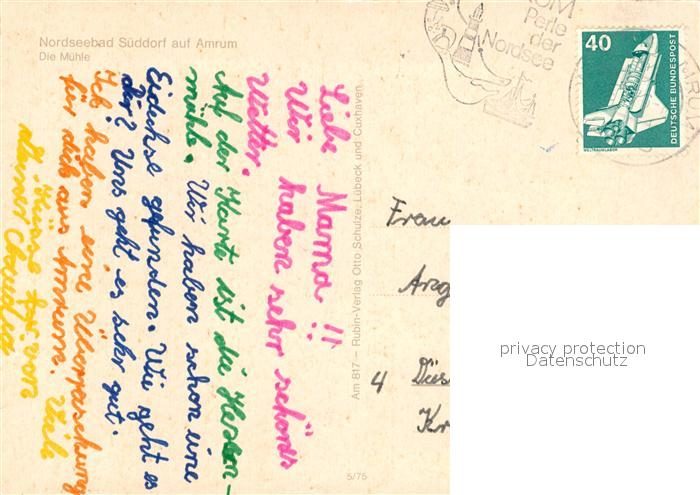 Nordseebad Süddorf auf Amrum
Die Mühle
Liebe Mama!!
Wir haben sehr schönes
Wetter.
Auf der Karte ist die
mühle. Wir haben schon eine
Eidechse gefunden. Wie geht es
dir? Uns geht es sehr gut.
Ich haben eine Überraschung
für dich aus Amrum. Viele
von
Claudia
Am 817 – Rubin-Verlag Otto Schulze, Lübeck und Cuxhaven
5/75
Perle
der
Nordsee
40
DEUTSCHE BUNDESPOST
WELTRAUMLABOR
Frau
4
Kr
privacy protection
Datenschutz